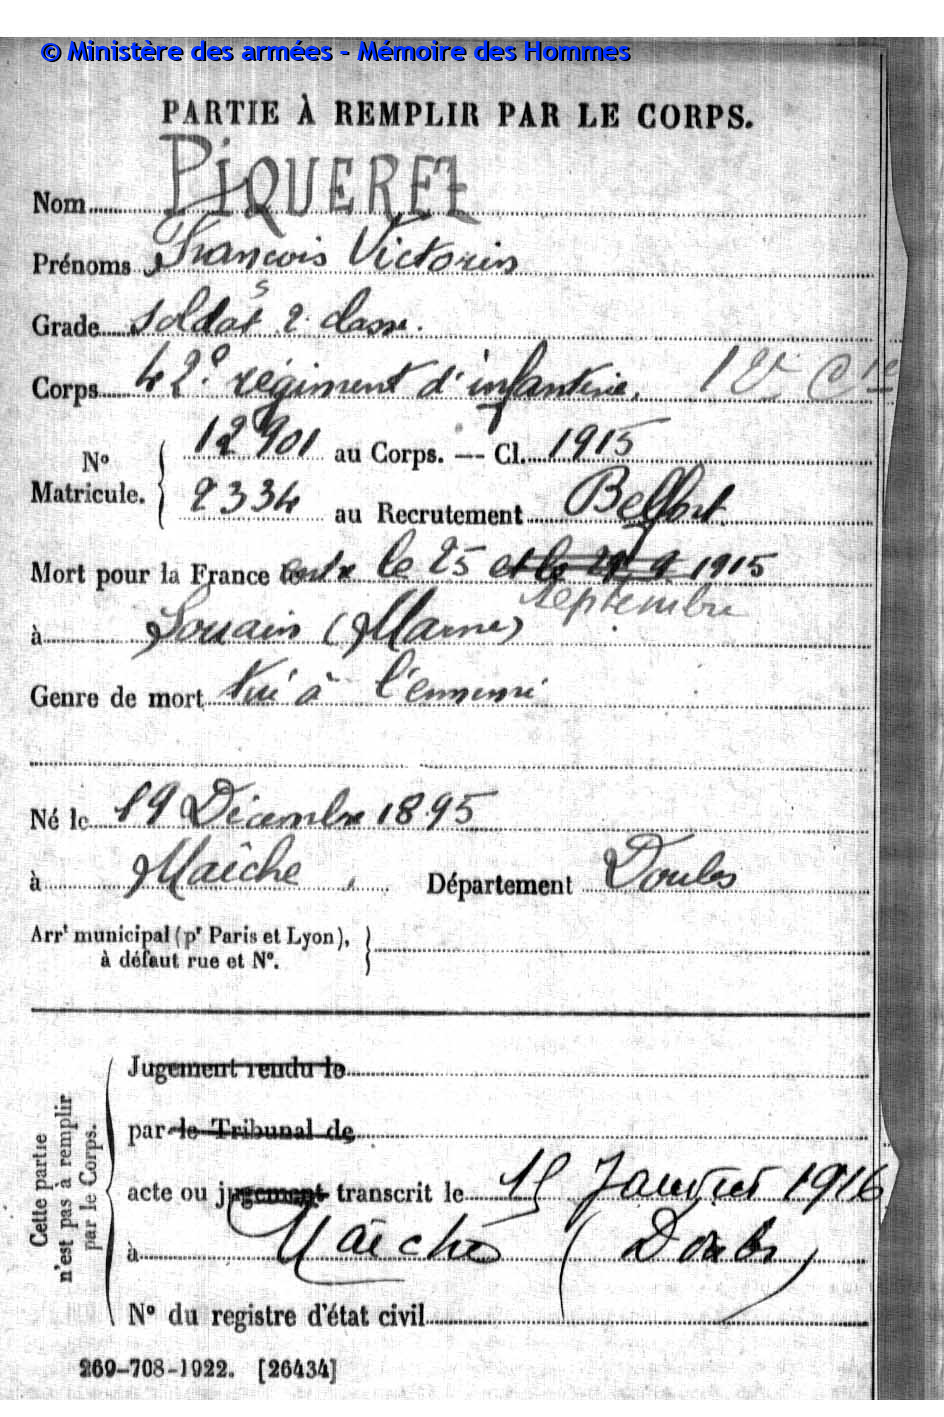 © Ministère des armées - Mémoire des Hommes
PARTIE À REMPLIR PAR LE CORPS.
Nom PIQUEREZ
Prénoms François Victorin
Grade Soldat 2 classe.
Corps 42e régiment d'infanterie. Cie
12901 au Corps. — Cl. 1915
N° Matricule.
2334 au Recrutement Belfort
Mort pour la France entre le 25 et le 29 9 1915
septembre
à Souain (Marne)
Genre de mort tué à l'ennemi
Né le 19 Décembre 1895
à Maîche, Département Doubs
Arrt municipal (pr Paris et Lyon),
à défaut rue et N°.
Cette partie n'est pas à remplir par le Corps.
Jugement rendu le
par le Tribunal de
acte ou jugement transcrit le 15 Janvier 1916
à Maîche (Doubs)
N° du registre d'état civil
269-708-1922. [26434]